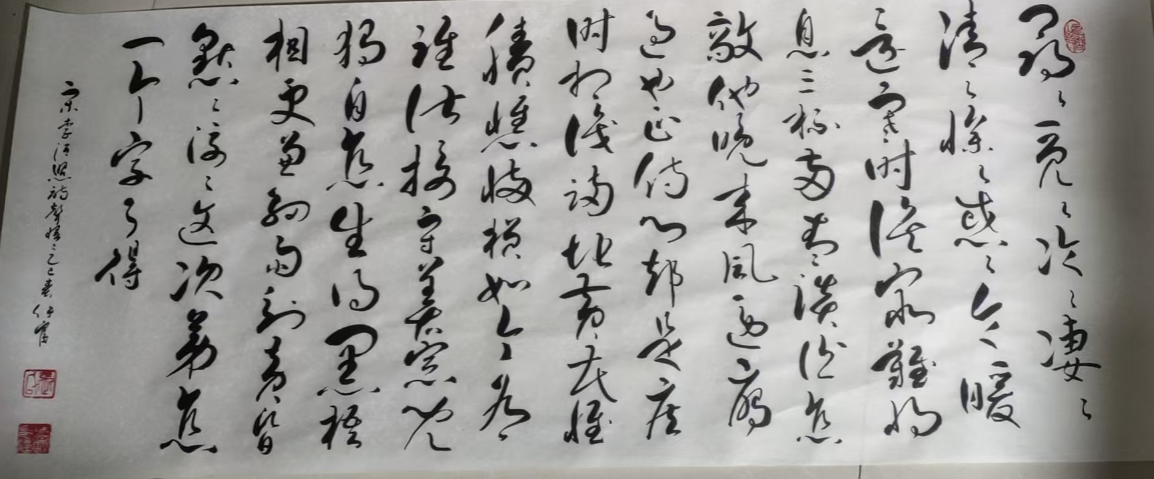 寻〻觅〻冷〻凄〻
清〻惨〻戚〻乍暖
还寒时候最难将
息三杯两盏淡酒怎
敌他晚来风急雁
过也正伤心却是旧
时相识满地黄花堆
積憔悴损如今有
谁堪摘守着窗儿
独自怎生得黑梧
桐更兼细雨到黄昏
点〻滴〻这次第怎
一个字了得
宋李清照词声慢〻乙巳春